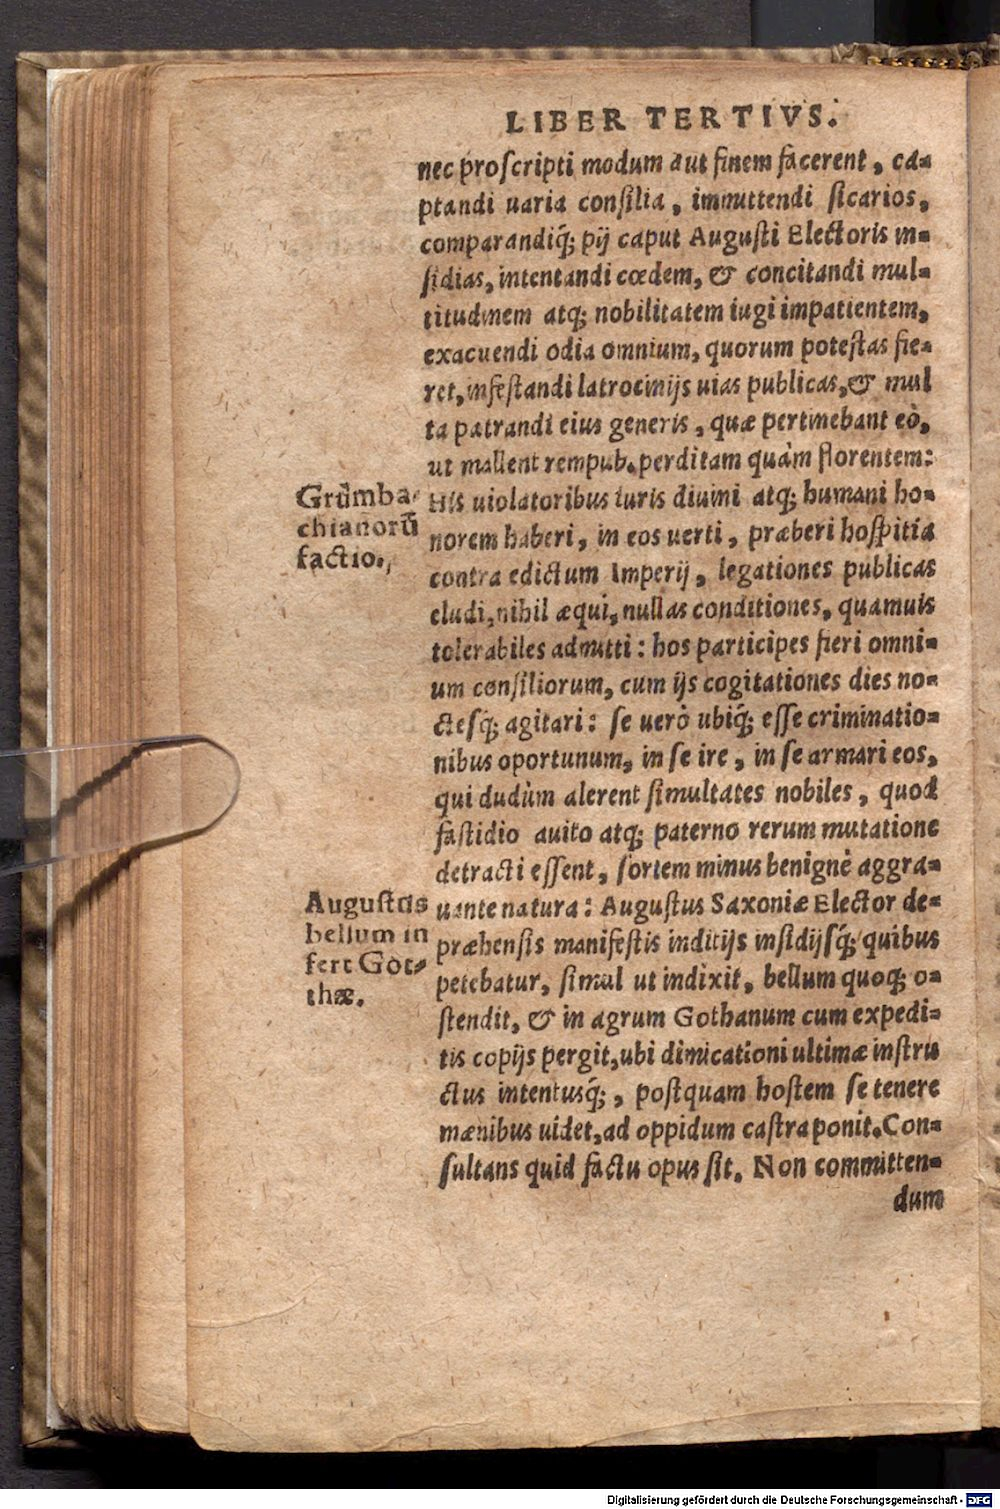 LIBER TERTIVS.
nec proſcripti modum aut finem facerent, ca-
ptandi uaria conſilia, immittendi ſicarios,
comparandiq́; pij caput Auguſti Electoris in-
ſidias, intentandi cœdem, & concitandi mul-
titudinem atq; nobilitatem iugi impatientem,
exacuendi odia omnium, quorum poteſtas fie-
ret, infeſtandi latrocinijs uias publicas, & mul
ta patrandi eius generis, quæ pertinebant eò,
ut mallent rempub. perditam quàm florentem:
His uiolatoribus iuris diuini atq; humani ho-
norem haberi, in eos uerti, præberi hoſpitia
contra edictum Imperij, legationes publicas
eludi, nihil æqui, nullas conditiones, quamuis
tolerabiles admitti: hos participes fieri omni-
um conſiliorum, cum ijs cogitationes dies no-
cteſq́; agitari: ſe uerò ubiq́; eſſe criminatio-
nibus oportunum, in ſe ire, in ſe armari eos,
qui dudùm alerent ſimultates nobiles, quod
faſtidio auito atq; paterno rerum mutatione
detracti eſſent, ſortem minus benignè aggra-
uante natura: Auguſtus Saxoniæ Elector de-
præhenſis manifeſtis inditijs inſidijſq́; quibus
petebatur, ſimul ut indixit, bellum quoq; o-
ſtendit, & in agrum Gothanum cum expedi-
tis copijs pergit, ubi dimicationi ultimæ inſtru
ctus intentusq́;, poſtquam hoſtem ſe tenere
mænibus uidet, ad oppidum caſtra ponit. Con-
ſultans quid factu opus ſit. Non committen-
dum
Grūmba-
chianorū
factio.
Auguſtus
bellum in
fert Got-
thæ.
Digitalisierung gefördert durch die Deutsche Forschungsgemeinschaft - DFG